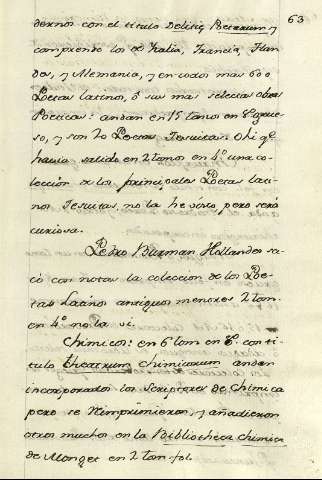 63
dernos con el titulo Delitiæ Poetarum y
comprende los de Italia, Francia, Flan
des, y Alemania, y en todos mas 600
Poetas latinos, ó sus mas selectas obras
Poeticas: andan en 15 tomos en 8º grue-
so, y son 20 Poetas Jesuitas. Ohi qe
havia salido en 2 tomos en 4º una co-
leccion de los principales Poetas lati-
nos Jesuitas, no la he visto, pero será
curiosa.
Pedro Burman Hollandes sa-
có con notas la coleccion de los Poe-
tas Latinos antiguos menores 2 tom.
en 4º no la vi.
Chimicos: en 6 tom en 8º con ti-
tulo theatrum chimicorum andan
incorporados los Scriptores de Chimica
pero se reimprimieron, y añadieron
otros muchos en la Bibliotheca chimica
de Manget en 2 tom fol.